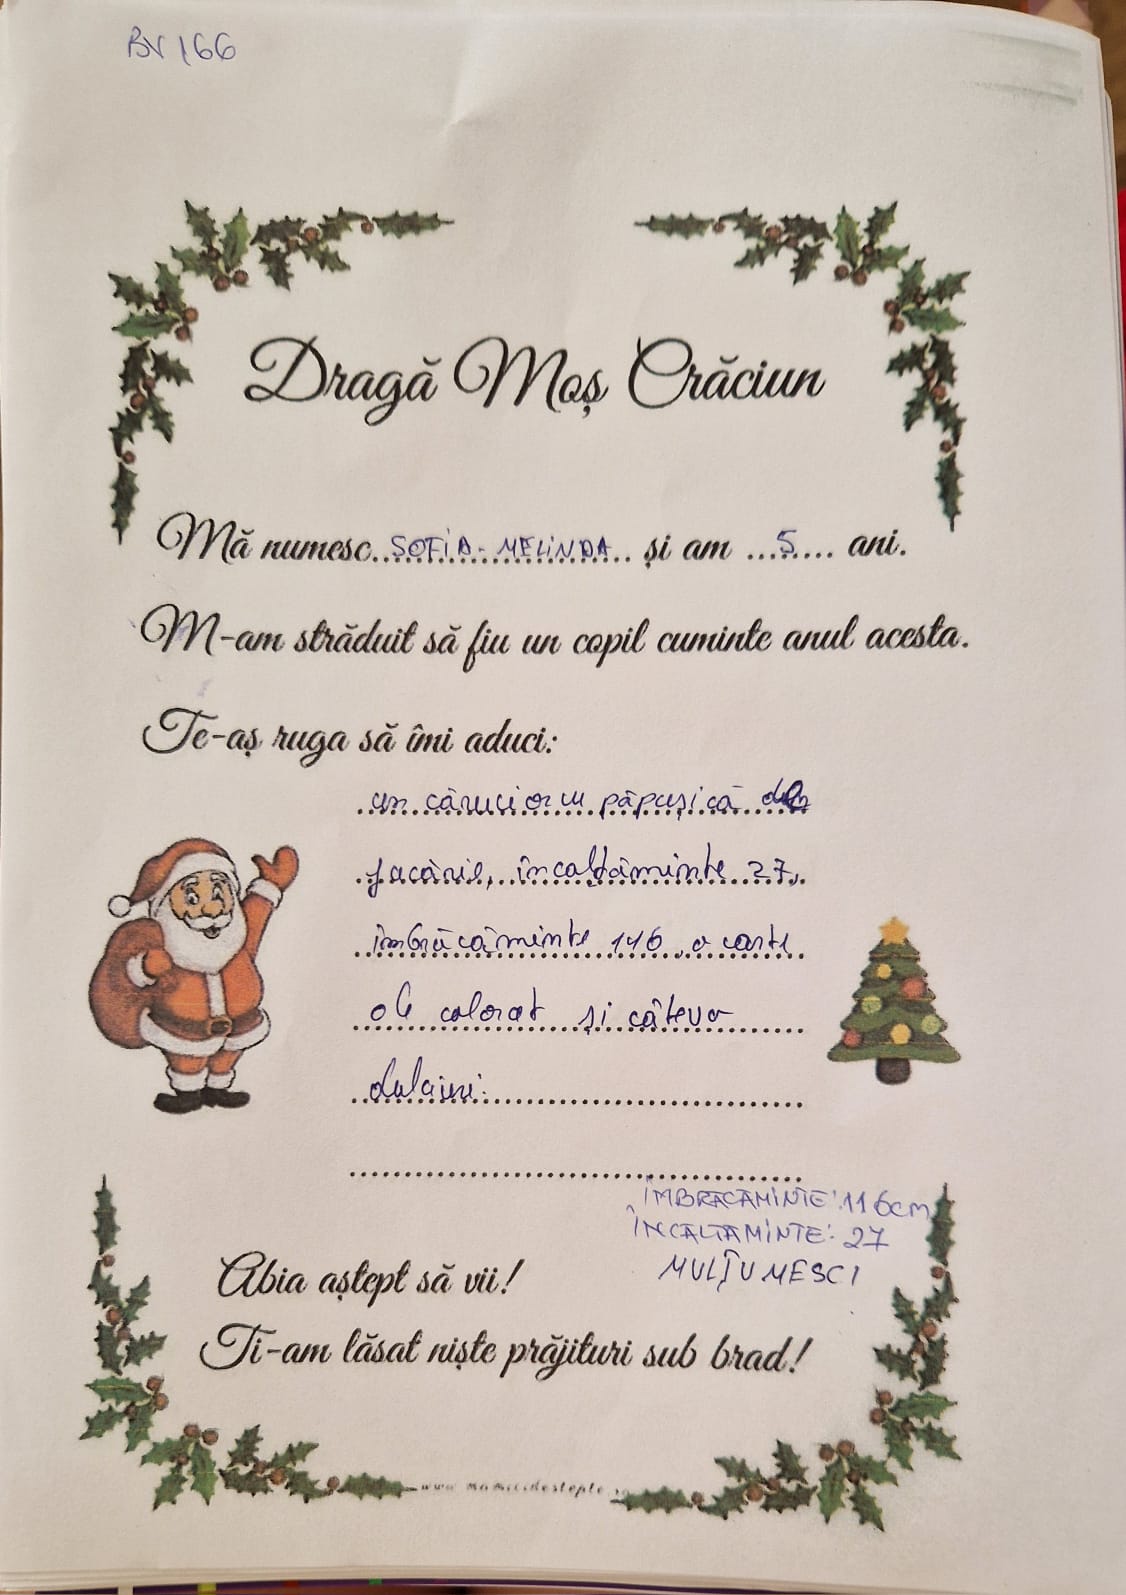 BV 166
Dragă Moș Crăciun
Mă numesc..SOFIA-MELINDA.. și am ...5.... ani.
M-am străduit să fiu un copil cuminte anul acesta.
Te-aș ruga să îmi aduci:
un cărucior cu păpușică de
jucărie, încălțăminte 27,
îmbrăcăminte 116, o carte
de colorat și câteva
dulciuri.
ÎMBRĂCĂMINTE: 116cm
ÎNCĂLTĂMINTE: 27
MULȚUMESC!
Abia aștept să vii!
Ti-am lăsat niște prăjituri sub brad!